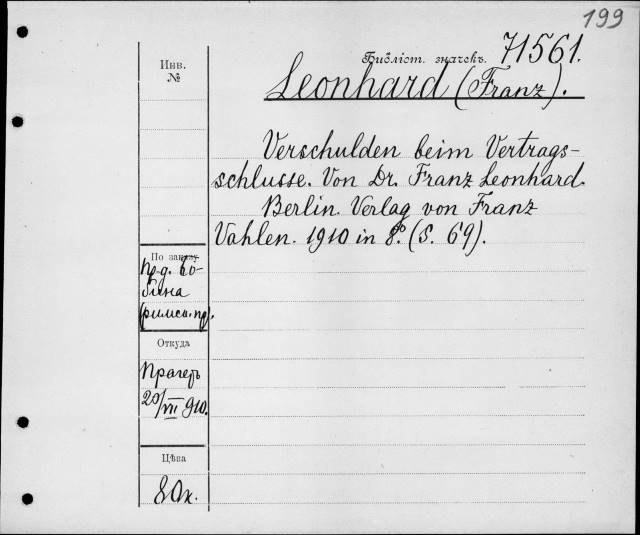 199
Библіот. значекъ. 71561.
Инв.
№
Leonhard (Franz).
Verschulden beim Vertrags-
schlusse. Von Dr. Franz Leonhard.
Berlin. Verlag von Franz
Vahlen. 1910 in 8º. (S. 69).
По заказу
Пр.д. Бо-
бина
(римск. пр).
Откуда
Прагеръ
20/VII 910.
Цѣна
80к.